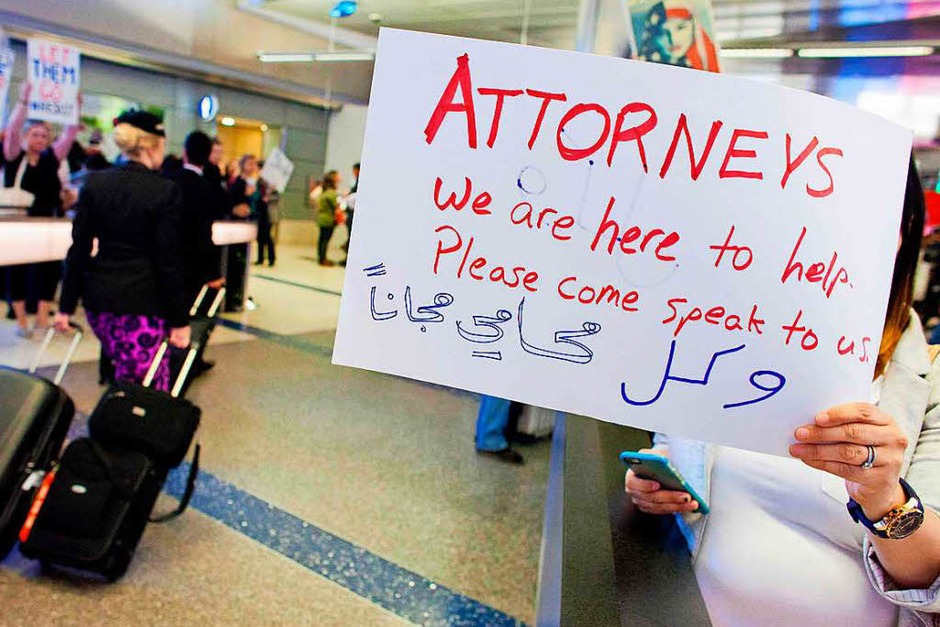 ATTORNEYS
We are here to help.
Please come speak to us.
وكل محامي مجاناً
LET
THEM
GO